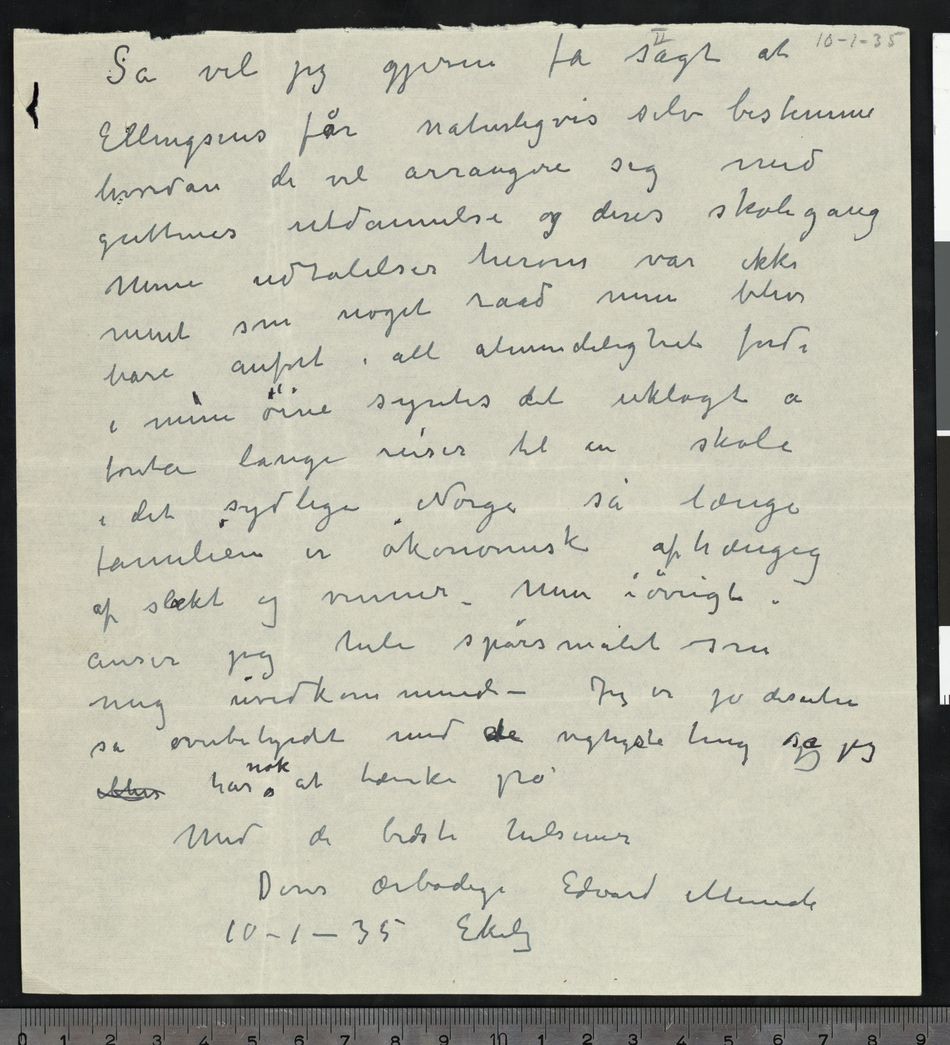 10-1-35
II
Så vil jeg gjerne få sagt at
Ellingsens får naturligvis selv bestemme
hvordan de vil arrangere sig med
guttenes utdannelse og deres skolegang
Mine udtalelser herom var ikke
ment som noget raad men blev
bare anført i all almindelighet fordi
i mine öine syntes det uklogt a
foreta lange reiser til en skole
i det sydlige Norge så længe
familien er ökonomisk afhængig
af slekt og venner – Men iövrigt
anser jeg hele spörsmålet som
mig uvedkommende – Jeg er jo desuten
så overbelyndt med de vigtigste ting så jeg
har nok at tænke på
Med de bedste hilsener
Deres ærbødige Edvard Munch
10–1–35 Ekely